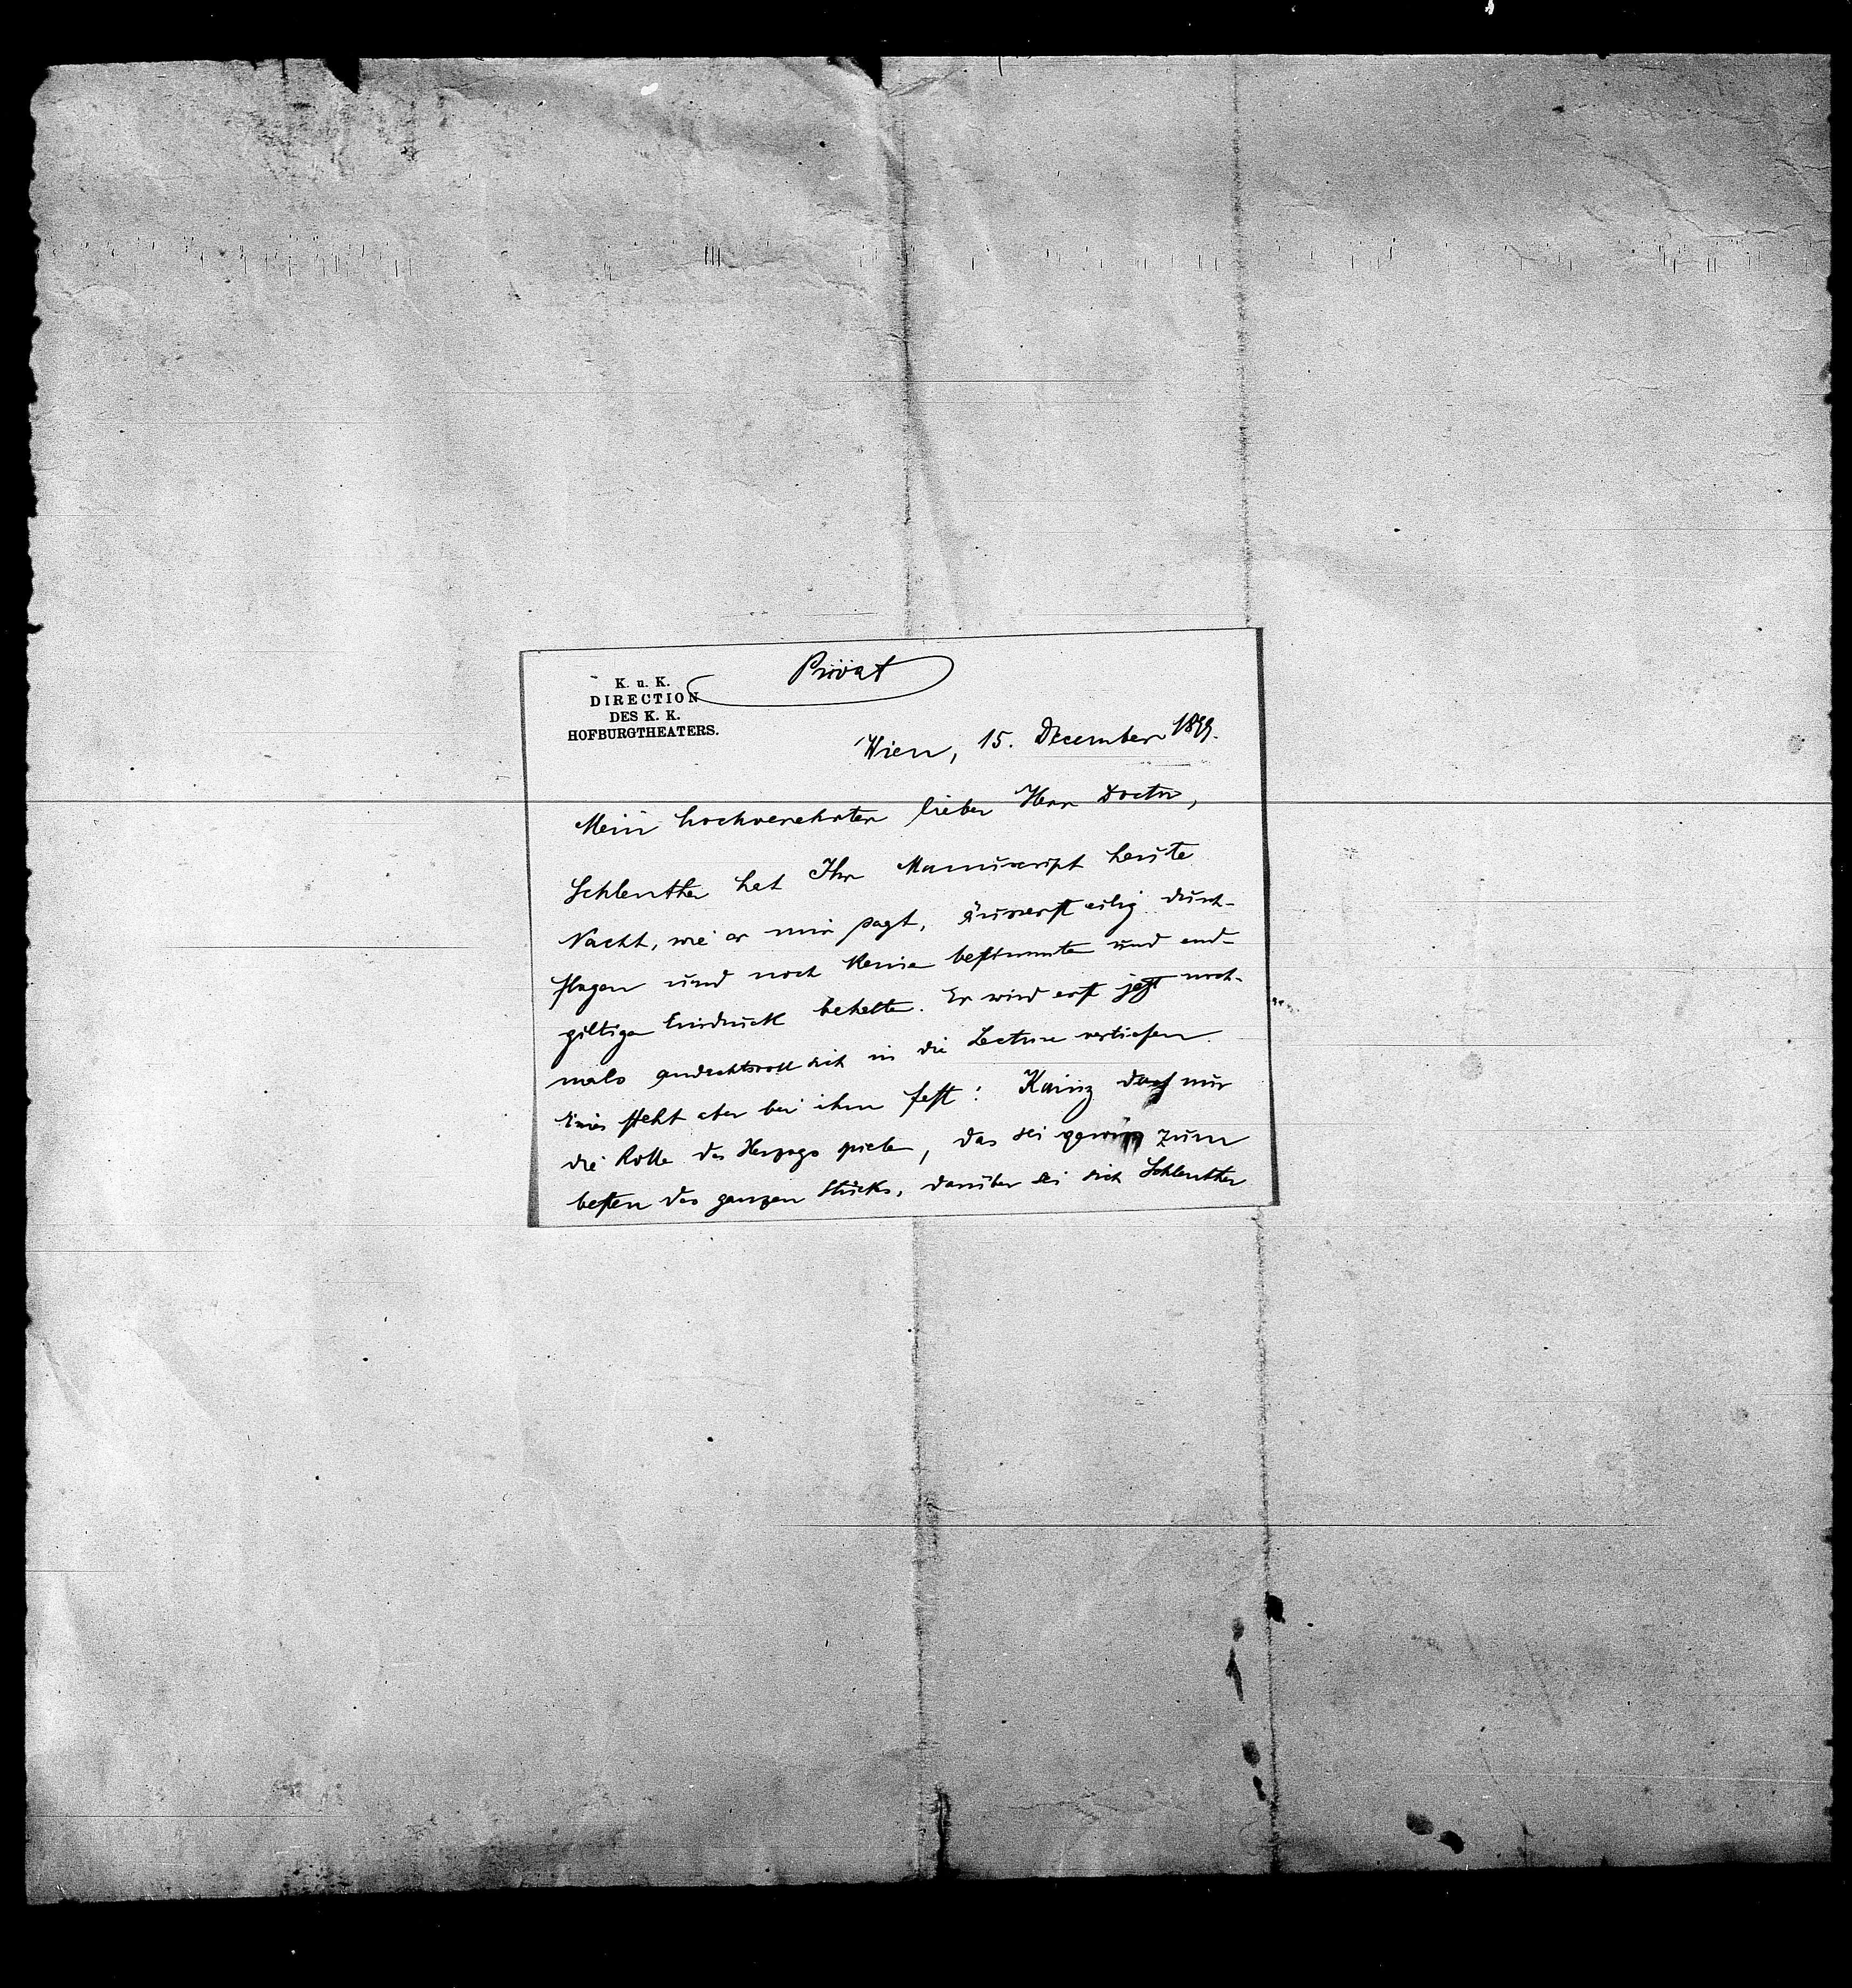 Privat
K. u. K.
DIRECTION
DES K. K.
HOFBURGTHEATERS.
Wien, 15. December 1899.
Mein hochverehrter lieber Herr Doctor,
Schlenther hat Ihr Manuscript heute
Nacht, wie er mir sagt, äusserst eilig durch-
flogen und noch keinen bestimmten und end-
giltigen Eindruck behalten. Er wird erst jetzt noch-
mals andachtsvoll sich in die Lectüre vertiefen.
Eines steht aber bei ihm fest: Kainz darf nur
die Rolle des Herzogs spielen, das sei gewiss zum
besten des ganzen Stücks, darüber sei sich Schlenther